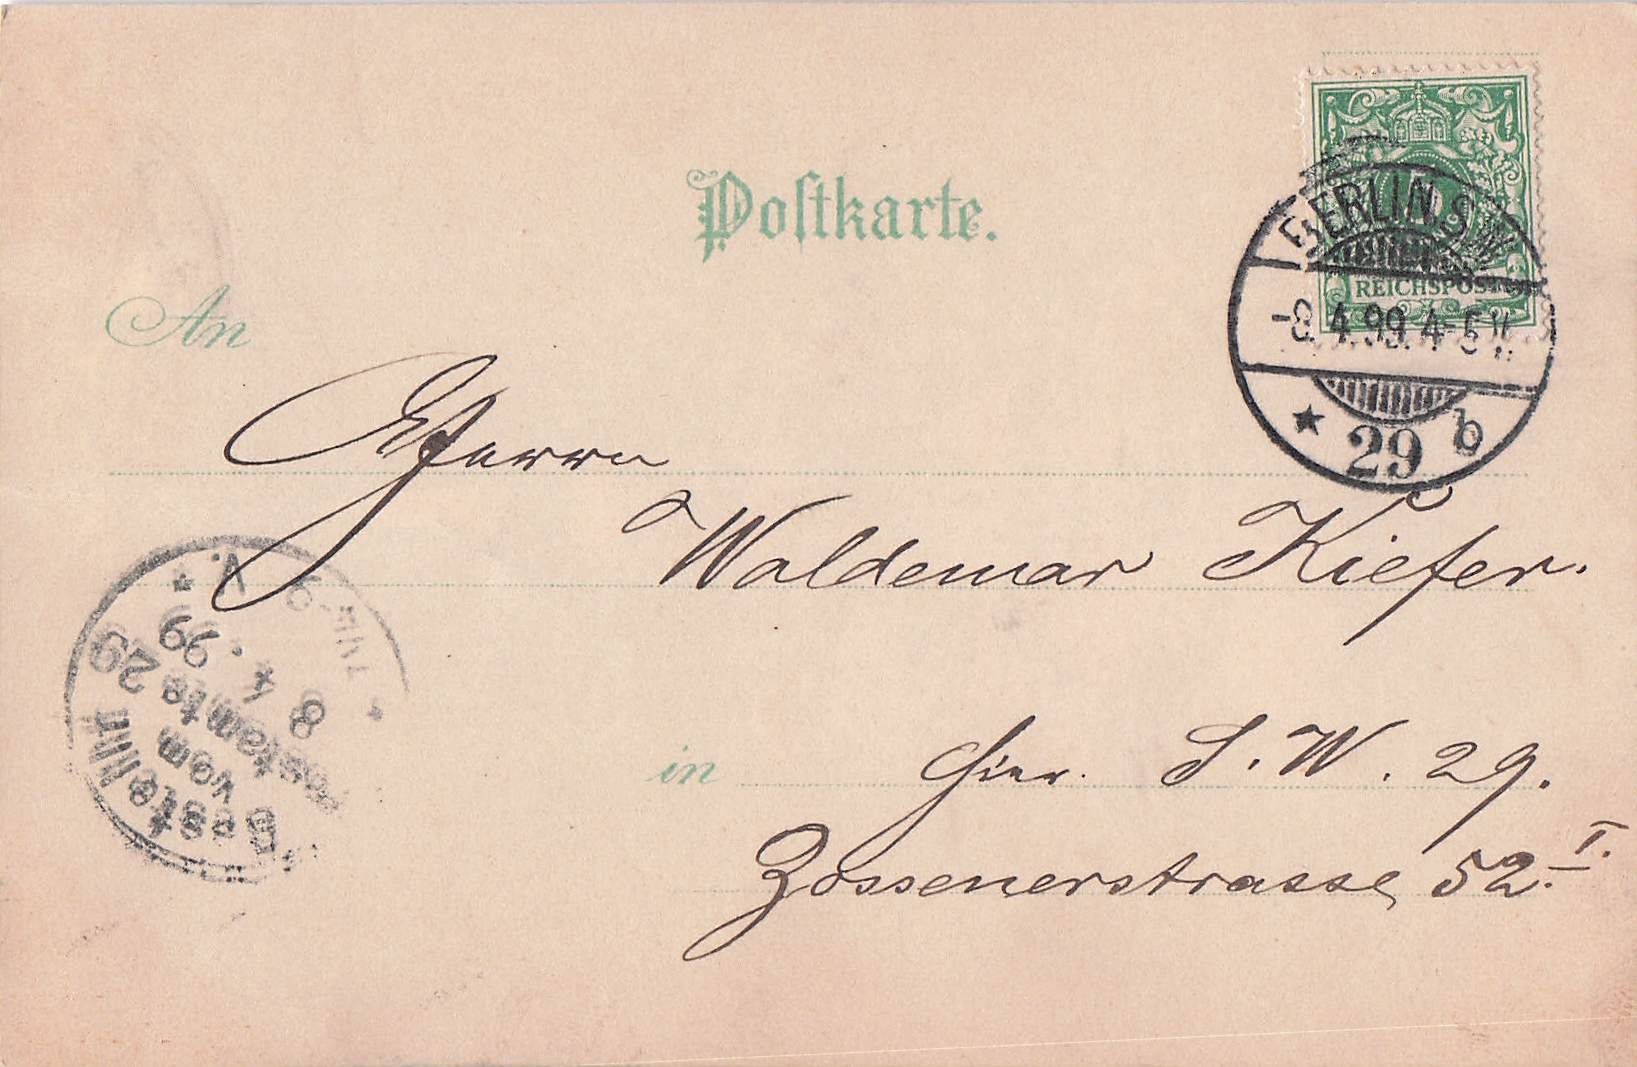 Postkarte.
REICHSPOST
BERLIN. S.W.
-8.4.99.4-5 N.
* 29 b
An
Herrn
Waldemar Kiefer.
in hier. S. W. 29.
Zossenerstrasse 52.I.
Bestellt
vom
Postamte 29
8 4. 99
V.